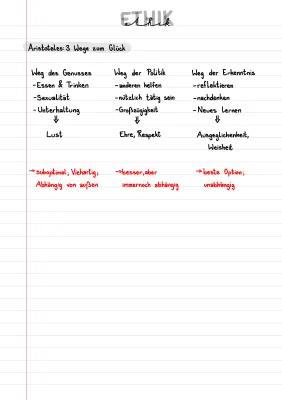 ETHIK
ethik
Aristoteles: 3 Wege zum Glück
Weg des Genusses
-Essen & Trinken
-Sexualität
-Unterhaltung
⇓
Lust
→ suboptimal, Viehartig,
Abhängig von außen
Weg der Politik
-anderen helfen
-nützlich tätig sein
-Großzügigkeit
⇓
Ehre, Respekt
→ besser, aber
immernoch abhängig
Weg der Erkenntnis
-reflektieren
-nachdenken
-Neues lernen
⇓
Ausgeglichenheit,
Weisheit
→ beste Option,
unabhängig